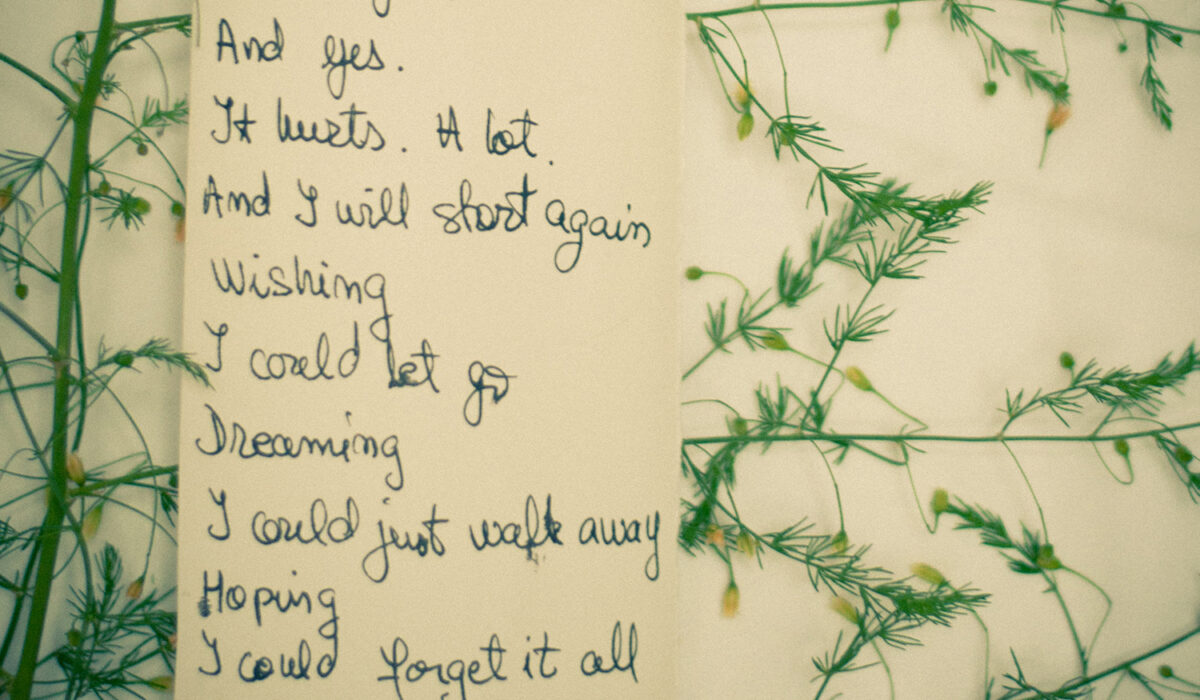 And yes.
It hurts. A lot.
And I will start again
Wishing
I could let go
Dreaming
I could just walk away
Hoping
I could forget it all